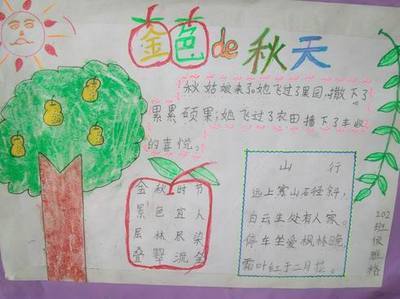 金色de秋天
秋姑娘来了。她飞过了果园,撒下了
累累硕果;她飞过了农田播下了丰收
的喜悦。
金秋时节
景色宜人
层林尽染
叠翠流金
山行
远上寒山石径斜,
白云生处有人家。
停车坐爱枫林晚
霜叶红于二月花。
202班